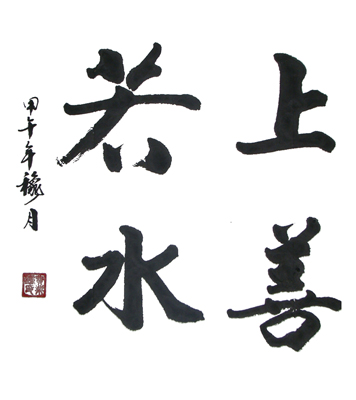 上善
若水
甲午年穐月